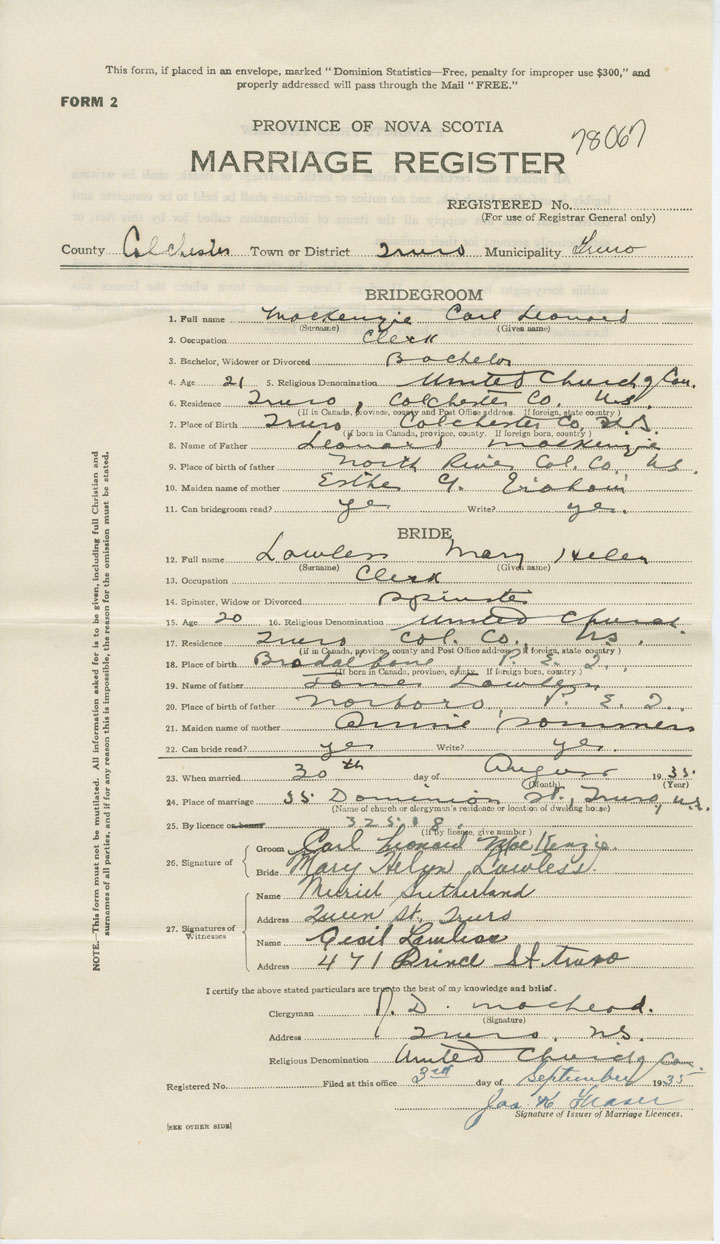 This form, if placed in an envelope, marked "Dominion Statistics—Free, penalty for improper use $300," and
properly addressed will pass through the Mail "FREE."
FORM 2
PROVINCE OF NOVA SCOTIA
78067
MARRIAGE REGISTER
REGISTERED No.
(For use of Registrar General only)
County Colchester Town or District Truro Municipality Truro
BRIDEGROOM
1. Full name MacKenzie Carl Leonard
(Surname) (Given name)
2. Occupation Clerk
3. Bachelor, Widower or Divorced Bachelor
4. Age 21 5. Religious Denomination United Church of Can.
6. Residence Truro, Colchester Co. N.S.
(If in Canada, province, county and Post Office address. If foreign, state country)
7. Place of Birth Truro Colchester Co, N.S.
(If born in Canada, province, county. If foreign born, country)
8. Name of Father Leonard MacKenzie
9. Place of birth of father North River Col. Co. N.S.
10. Maiden name of mother Esther
11. Can bridegroom read? yes Write? yes.
BRIDE
12. Full name Lawless Mary Helen
(Surname) (Given name)
13. Occupation Clerk
14. Spinster, Widow or Divorced Spinster
15. Age 20 16. Religious Denomination United Church.
17. Residence Truro Col. Co., N.S.
(If in Canada, province, county and Post Office address. If foreign, state country)
18. Place of birth Bradalbane, P. E. I.,
(If born in Canada, province, county. If foreign born, country)
19. Name of father James Lawless
20. Place of birth of father Norboro, P. E. I.
21. Maiden name of mother Annie Sommers
22. Can bride read? yes Write? yes.
23. When married 30th day of August 1935.
(Month) (Year)
24. Place of marriage 35 Dominion St., Truro, N.S.
(Name of church or clergyman's residence or location of dwelling house)
25. By licence or banns 32518.
(If by license, give number)
26. Signature of
Groom Carl Leonard MacKenzie.
Bride Mary Helen Lawless.
27. Signatures of Witnesses
Name Muriel Sutherland
Address Queen St. Truro
Name Cecil Lawless
Address 471 Prince St Truro
I certify the above stated particulars are true to the best of my knowledge and belief.
Clergyman D. MacLeod.
(Signature)
Address Truro, N.S.
Religious Denomination United Church of Can.
Registered No. Filed at this office 3rd day of September 1935
Jas K Fraser
Signature of Issuer of Marriage Licences.
[SEE OTHER SIDE]
NOTE.—This form must not be mutilated. All information asked for is to be given, including full Christian and
surnames of all parties, and if for any reason this is impossible, the reason for the omission must be stated.